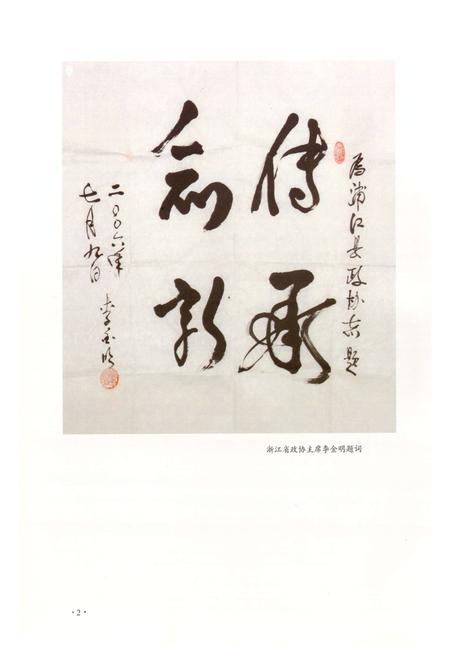 为浦江县政协志题
传承
创新
二〇〇六年
七月九日
李金明
浙江省政协主席李金明题词
·2·